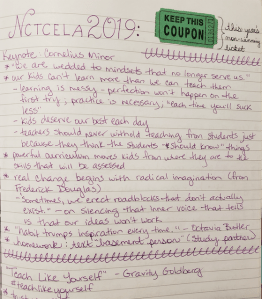 NCTCELA 2019:
KEEP THIS
COUPON
this year's
non-winning
ticket
Keynote: Cornelius Minor
* "We are wedded to mindsets that no longer serve us."
* our kids can't learn more than we can teach them
- learning is messy - perfection won't happen on the
first try, practice is necessary, "each time you'll suck
less"
- kids deserve our best each day
- teachers should never withhold teaching from students just
because they think the students "should know" things
* powerful curriculum moves kids from where they are to
ones that will be assessed
* real change begins with radical imagination (from
Frederick Douglas)
- "Sometimes, we erect roadblocks that don't actually
exist." - on silencing that inner voice that tells
us is that our ideas won't work
* "Habit trumps inspiration every time." -
* homework: seek "basement person" (study partner)
"Teach Like Yourself" - Gravity Goldberg
#teachlikeyourself